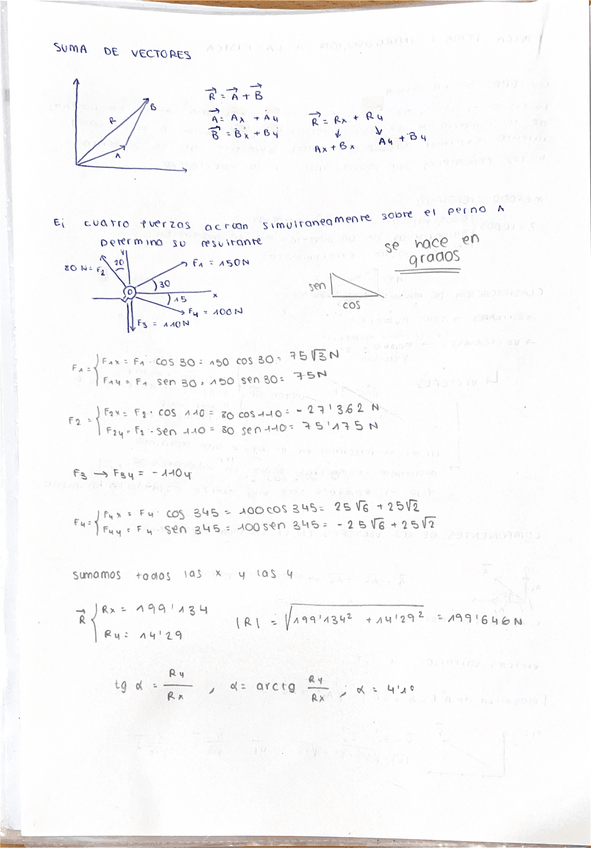 SUMA DE VECTORES
B
R
A
R = A + B
A = Ax + Ay
B = Bx + By
R = Rx + Ry
Ax + Bx Ay + By
Ej cuatro fuerzas actuan simultaneamente sobre el perno A
Determina su resultante
se hace en
grados
y
20
80 N = F2
F1 = 150N
30
15
x
F4 = 100N
F3 = 110N
sen
cos
F1 = { F1x = F1 · cos 30 = 150 cos 30 = 75√3 N
F1y = F1 sen 30 = 150 sen 30 = 75N
F2 = { F2x = F2 · cos 110 = 80 cos 110 = - 27'362 N
F2y = F2 · sen 110 = 80 sen 110 = 75'175 N
F3 → F3y = - 110y
F4 = { F4x = F4 · cos 345 = 100 cos 345 = 25√6 + 25√2
F4y = F4 sen 345 = 100 sen 345 = - 25√6 + 25√2
Sumamos todas las x y las y
R { Rx = 199'134
Ry = 14'29
|R| = √199'134² + 14'29² = 199'646 N
tg α = Ry/Rx , α = arctg Ry/Rx ; α = 4'1º